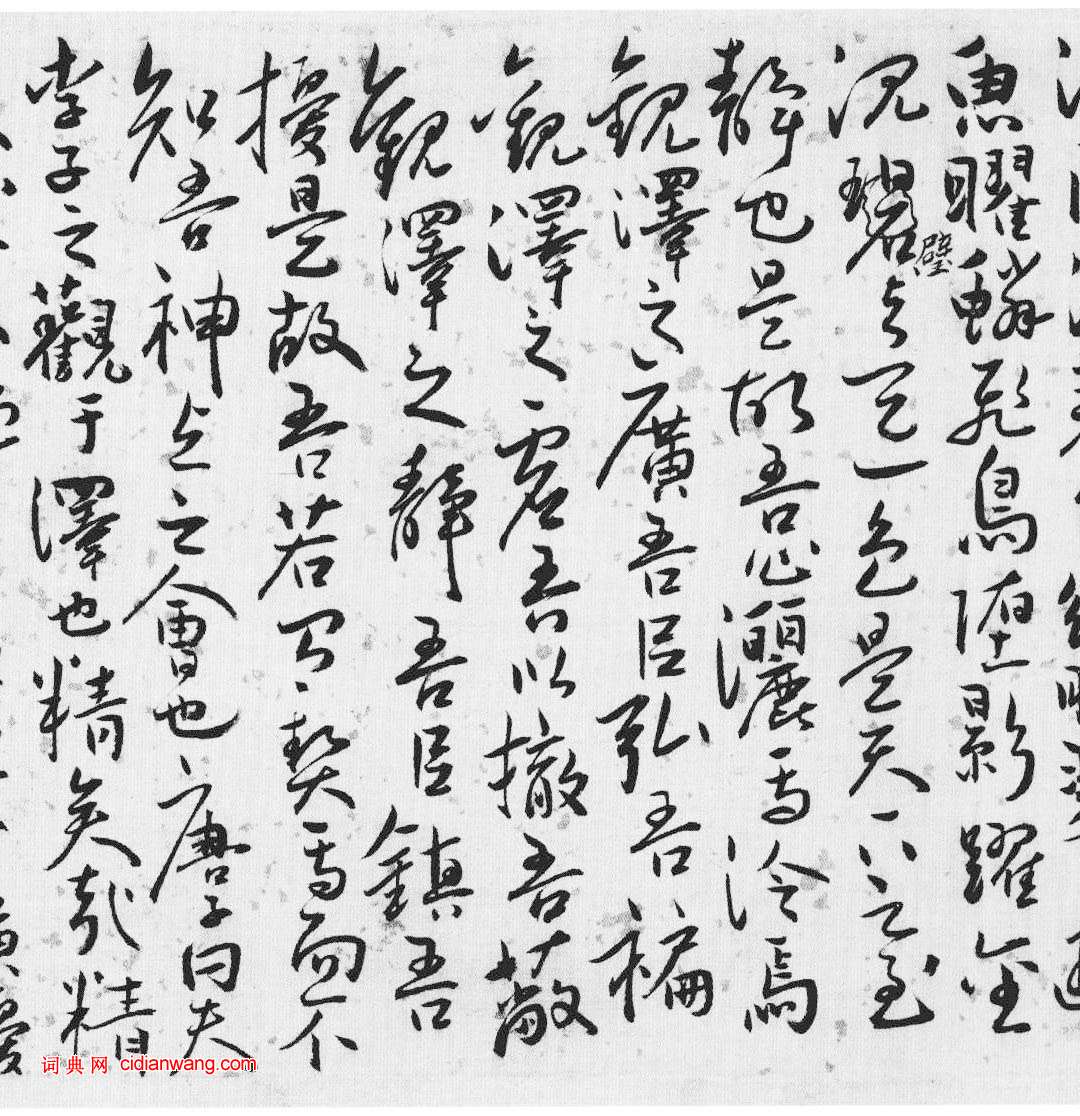 魚曜鱗飛鳥墮影躍金
沉碧與天一色是天下之至
璧
靜也是故吾心灑焉泠焉
觀澤之廣吾㠯弘吾褊
觀澤之虛吾以撤吾蔽
觀澤之靜吾㠯鎮吾
擾是故吾若有契焉而不
知吾神与之會也唐子曰夫
李子之觀于澤也精矣哉精
词典网 cidianwang.com